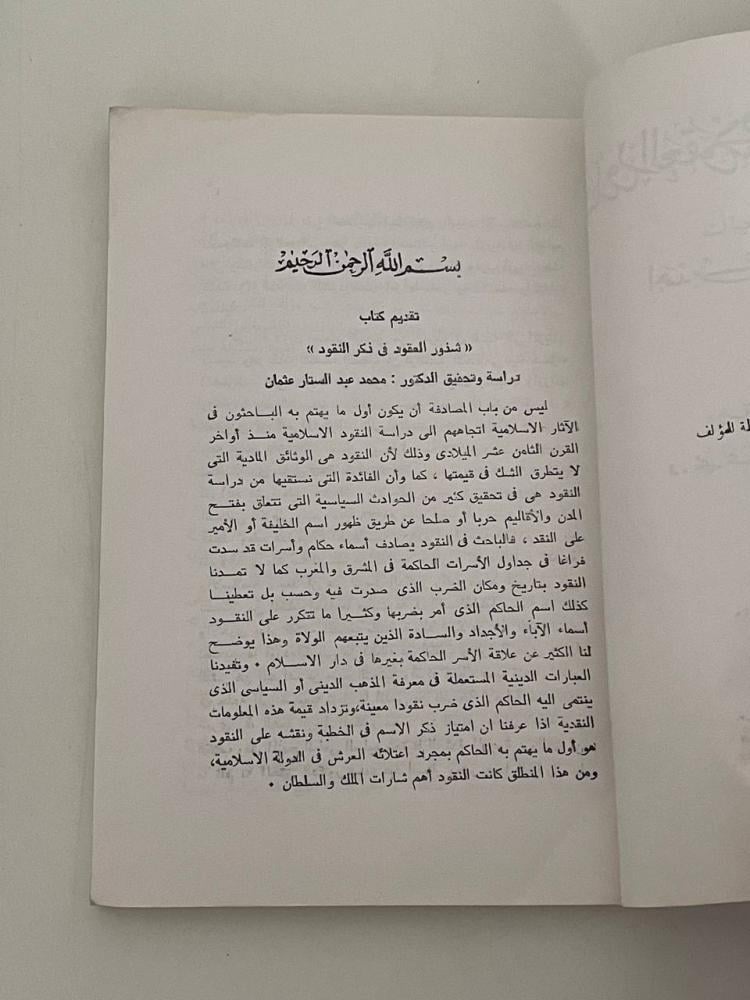 بسم الله الرحمن الرحيم
تقديم كتاب
« شذور العقود فى ذكر النقود »
دراسة وتحقيق الدكتور : محمد عبد الستار عثمان
ليس من باب المصادفة أن يكون أول ما يهتم به البـاحثون فى
الآثار الاسلامية اتجاههم الى دراسة النقود الاسلامية منـذ أواخر
القرن الثامن عشر الميلادى وذلك لأن النقود هى الوثائق المادية التى
لا يتطرق الشك فى قيمتها ، كما وأن الفائدة التى نستقيها من دراسة
النقود هى فى تحقيق كثير من الحوادث السياسية التى تتعلق بفتـــح
المدن والأقاليم حربا أو صلحا عن طريق ظهور اسم الخليفة أو الأمير
على النقد ، فالباحث فى النقود يصادف أسماء حكام وأسرات قد سدت
فراغا فى جداول الأسرات الحاكمة فى المشرق والمغرب كما لا تمـدنا
النقود بتاريخ ومكان الضرب الذى صدرت فيه وحسب بل تعطينـا
كذلك اسم الحاكم الذى أمر بضربها وكثيـرا ما تتكرر على النقـــود
أسماء الآباء والأجداد والســادة الذين يتبعهم الولاة وهذا يوضــح
لنا الكثير عن علاقة الأسر الحاكمة بغيرها فى دار الاســـلام . وتفيدنا
العبارات الدينية المستعملة فى معرفة المذهب الدينى أو السياسى الذى
ينتمى اليه الحاكم الذى ضرب نقودا معينة،وتزداد قيمة هذه المعلومات
النقدية اذا عرفنا ان امتياز ذكر الاسم فى الخطبة ونقشه على النقود
هو أول ما يهتم به الحاكم بمجرد اعتلائه العرش فى الدولة الاسلامية،
ومن هذا المنطلق كانت النقود أهم شارات الملك والسلطان .
لة للمؤلف